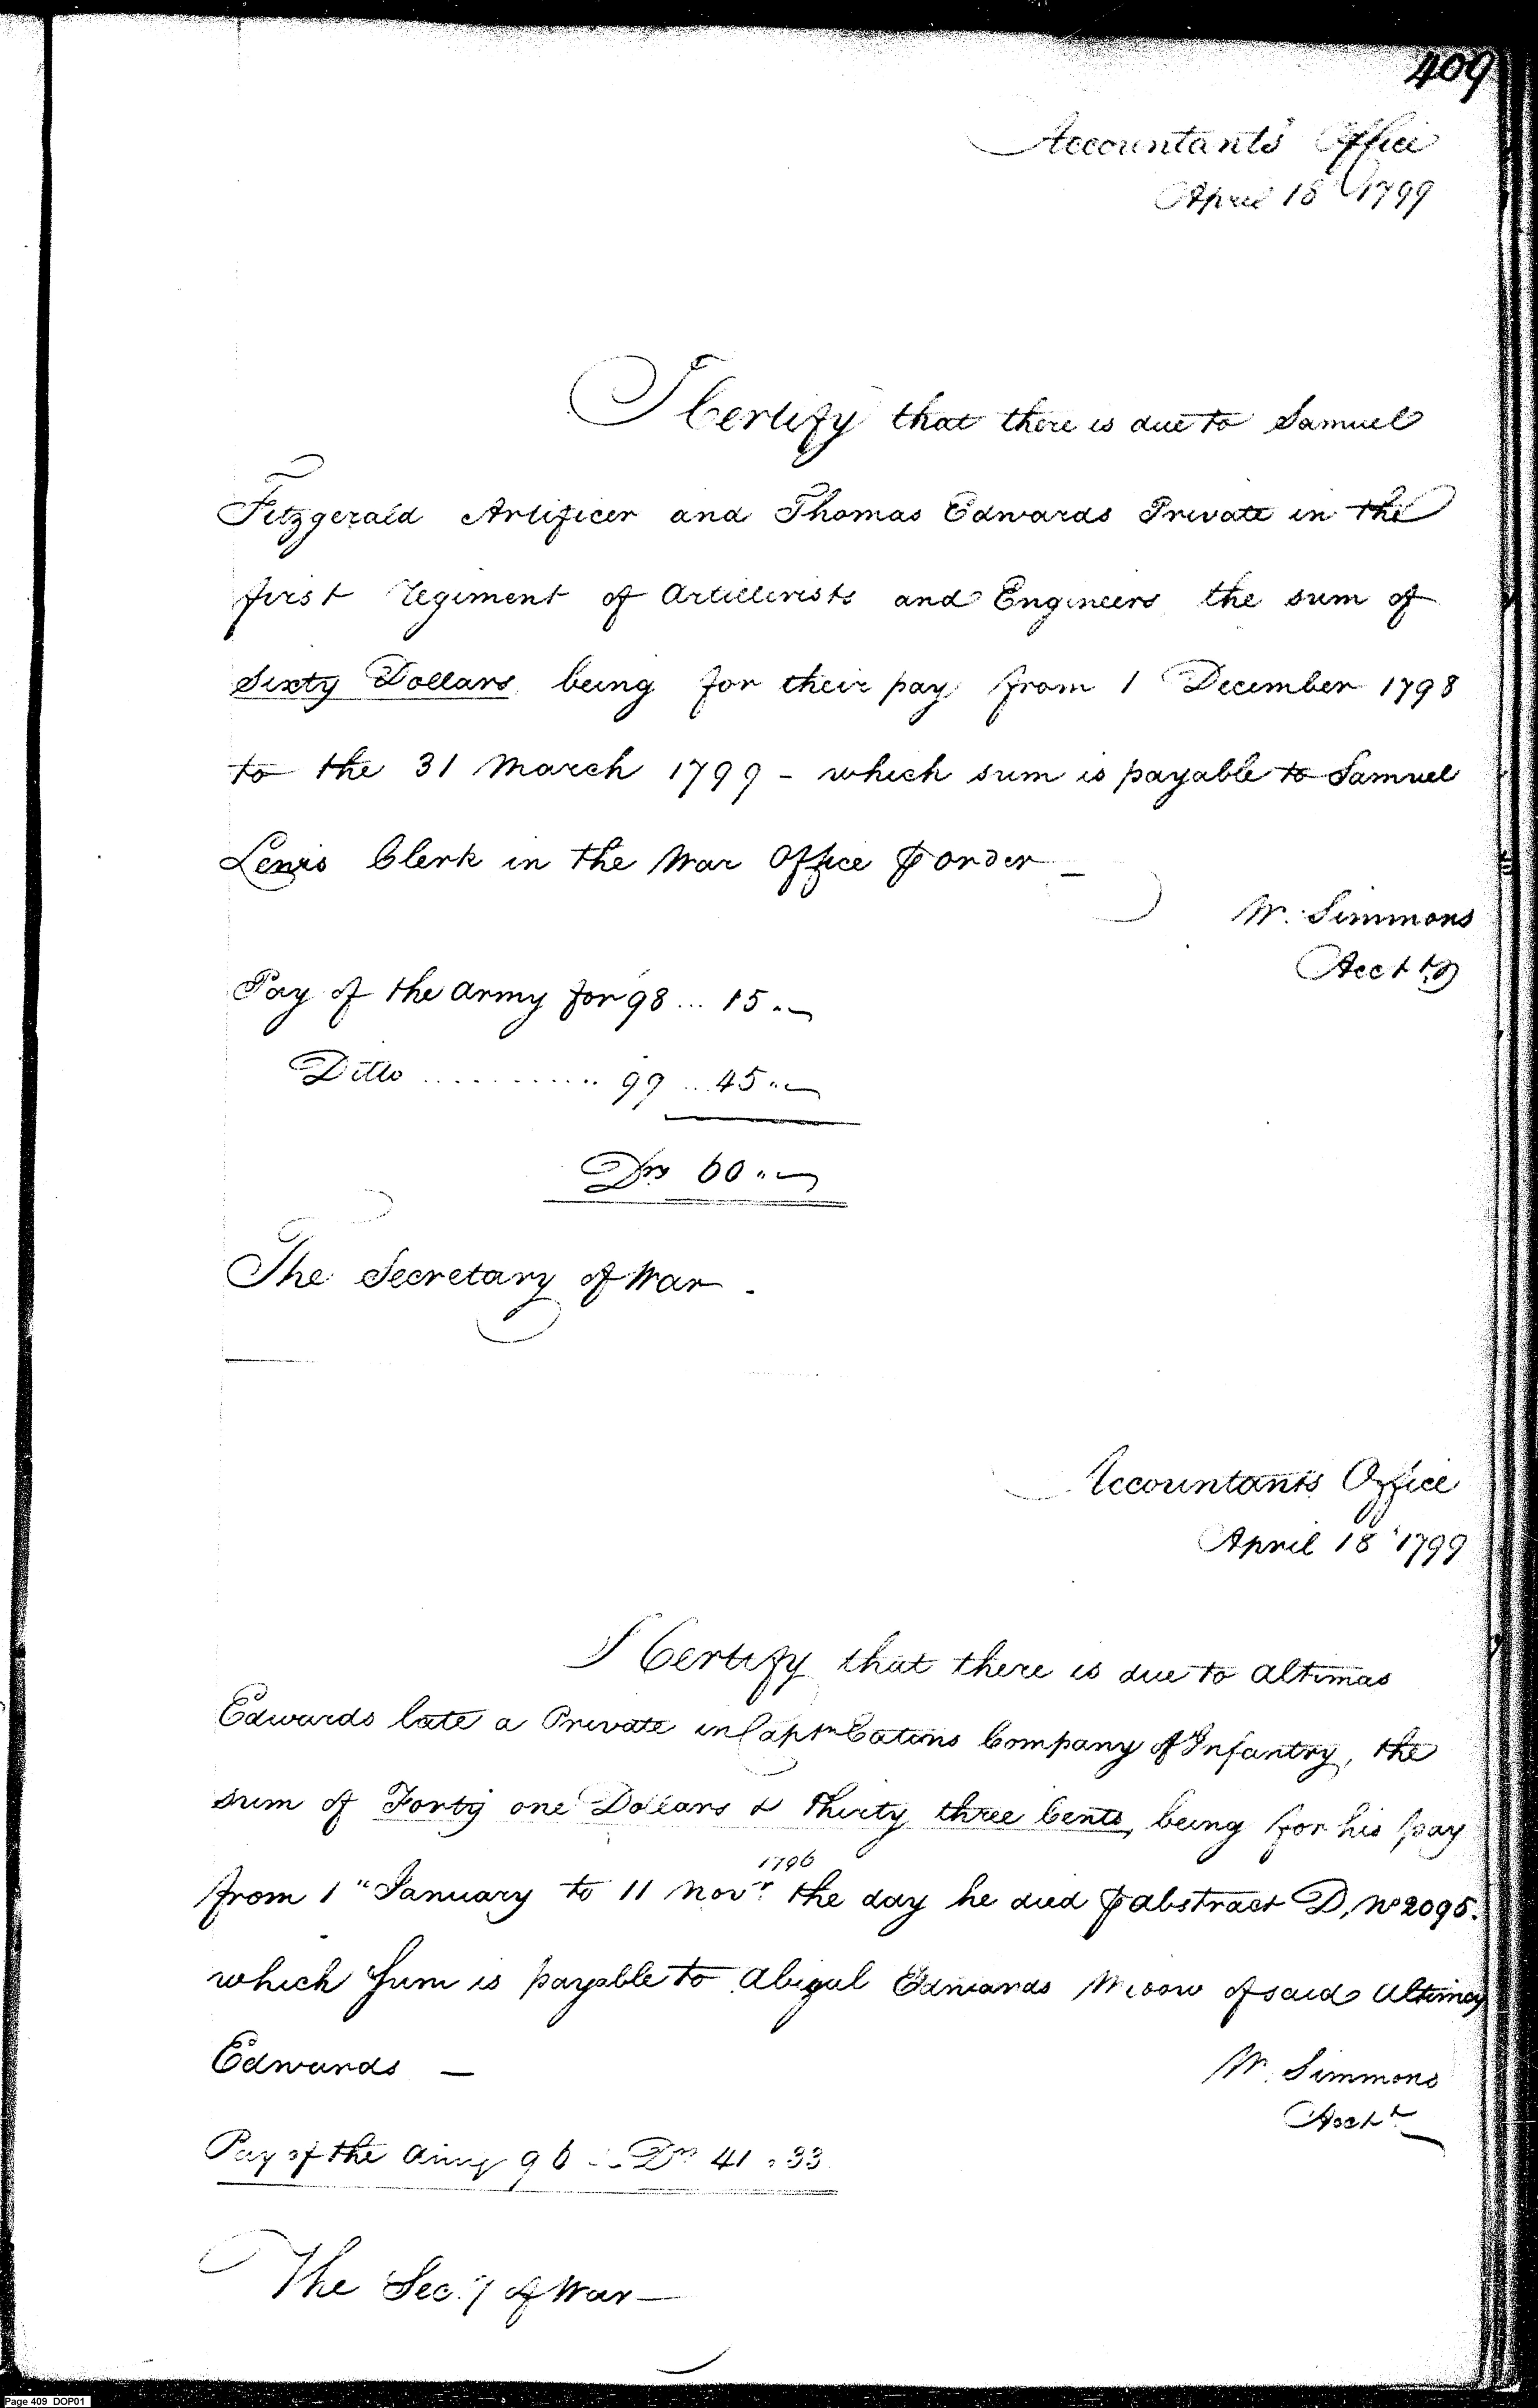 409
Accountants Office
April 18 1799
I Certify that there is due to Samuel
Fitzgerald Artificer and Thomas Edwards Private in the
first regiment of Artillerists and Engineers the sum of
Sixty Dollars being for their pay from 1 December 1798
to the 31 March 1799 - which sum is payable to Samuel
Lewis Clerk in the War Office ⅌ order —
W. Simmons
Acctt
Pay of the Army for 98 ... 15 "
Ditto ............ 99 ... 45 "
Drs 60 "
The Secretary of War .
Accountants Office
April 18 1799
I Certify that there is due to Altimas
Edwards late a Private in Captn Eatons Company of Infantry, the
sum of Forty one Dollars & thirty three Cents, being for his pay
1796
from 1 " January to 11 Novr. the day he died ⅌ abstract D, No 2095.
which Sum is payable to Abigul Edwards Widow of said Altimas
Edwards —
W. Simmons
Acctt
Pay of the Army 96 ... Drs 41 . 33
The Secy of War —
Page 409 DOP01